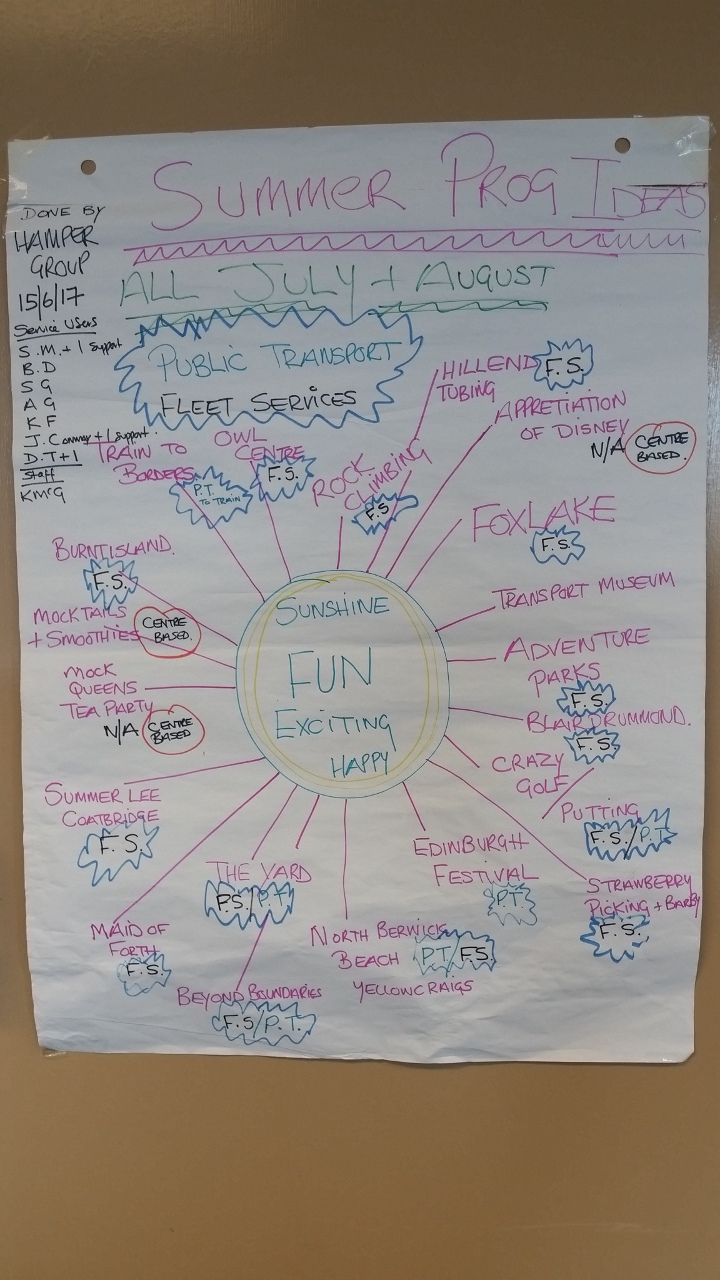 SUMMER PROG IDEAS
DONE BY
HAMPER
GROUP
15/6/17
Service Users
S.M. + 1 support
B.D
S G
A G
K F
J. Connor + 1 support.
D.T + 1
Staff
KMcG
ALL JULY + AUGUST
PUBLIC TRANSPORT
FLEET SERVICES
HILLEND
TUBING
F.S.
APPRETIATION
OF DISNEY
N/A CENTRE
BASED.
TRAIN TO
BORDERS
P.T.
TO TRAIN
OWL
CENTRE
F.S.
ROCK
CLIMBING
F.S
FOXLAKE
F.S.
BURNTISLAND.
F.S.
TRANSPORT MUSEUM
MOCKTAILS
+ SMOOTHIES
CENTRE
BASED.
ADVENTURE
PARKS
F.S.
MOCK
QUEENS
TEA PARTY
N/A CENTRE
BASED
BLAIR DRUMMOND.
F.S.
SUNSHINE
FUN
EXCITING
HAPPY
CRAZY
GOLF
PUTTING
F.S./P.T.
SUMMER LEE
COATBRIDGE
F.S.
THE YARD
P.S./P.T.
EDINBURGH
FESTIVAL
P.T.
STRAWBERRY
PICKING + BARBY
F.S.
MAID OF
FORTH
F.S.
NORTH BERWICK
BEACH P.T./F.S.
YELLOWCRAIGS
BEYOND BOUNDARIES
F.S/P.T.